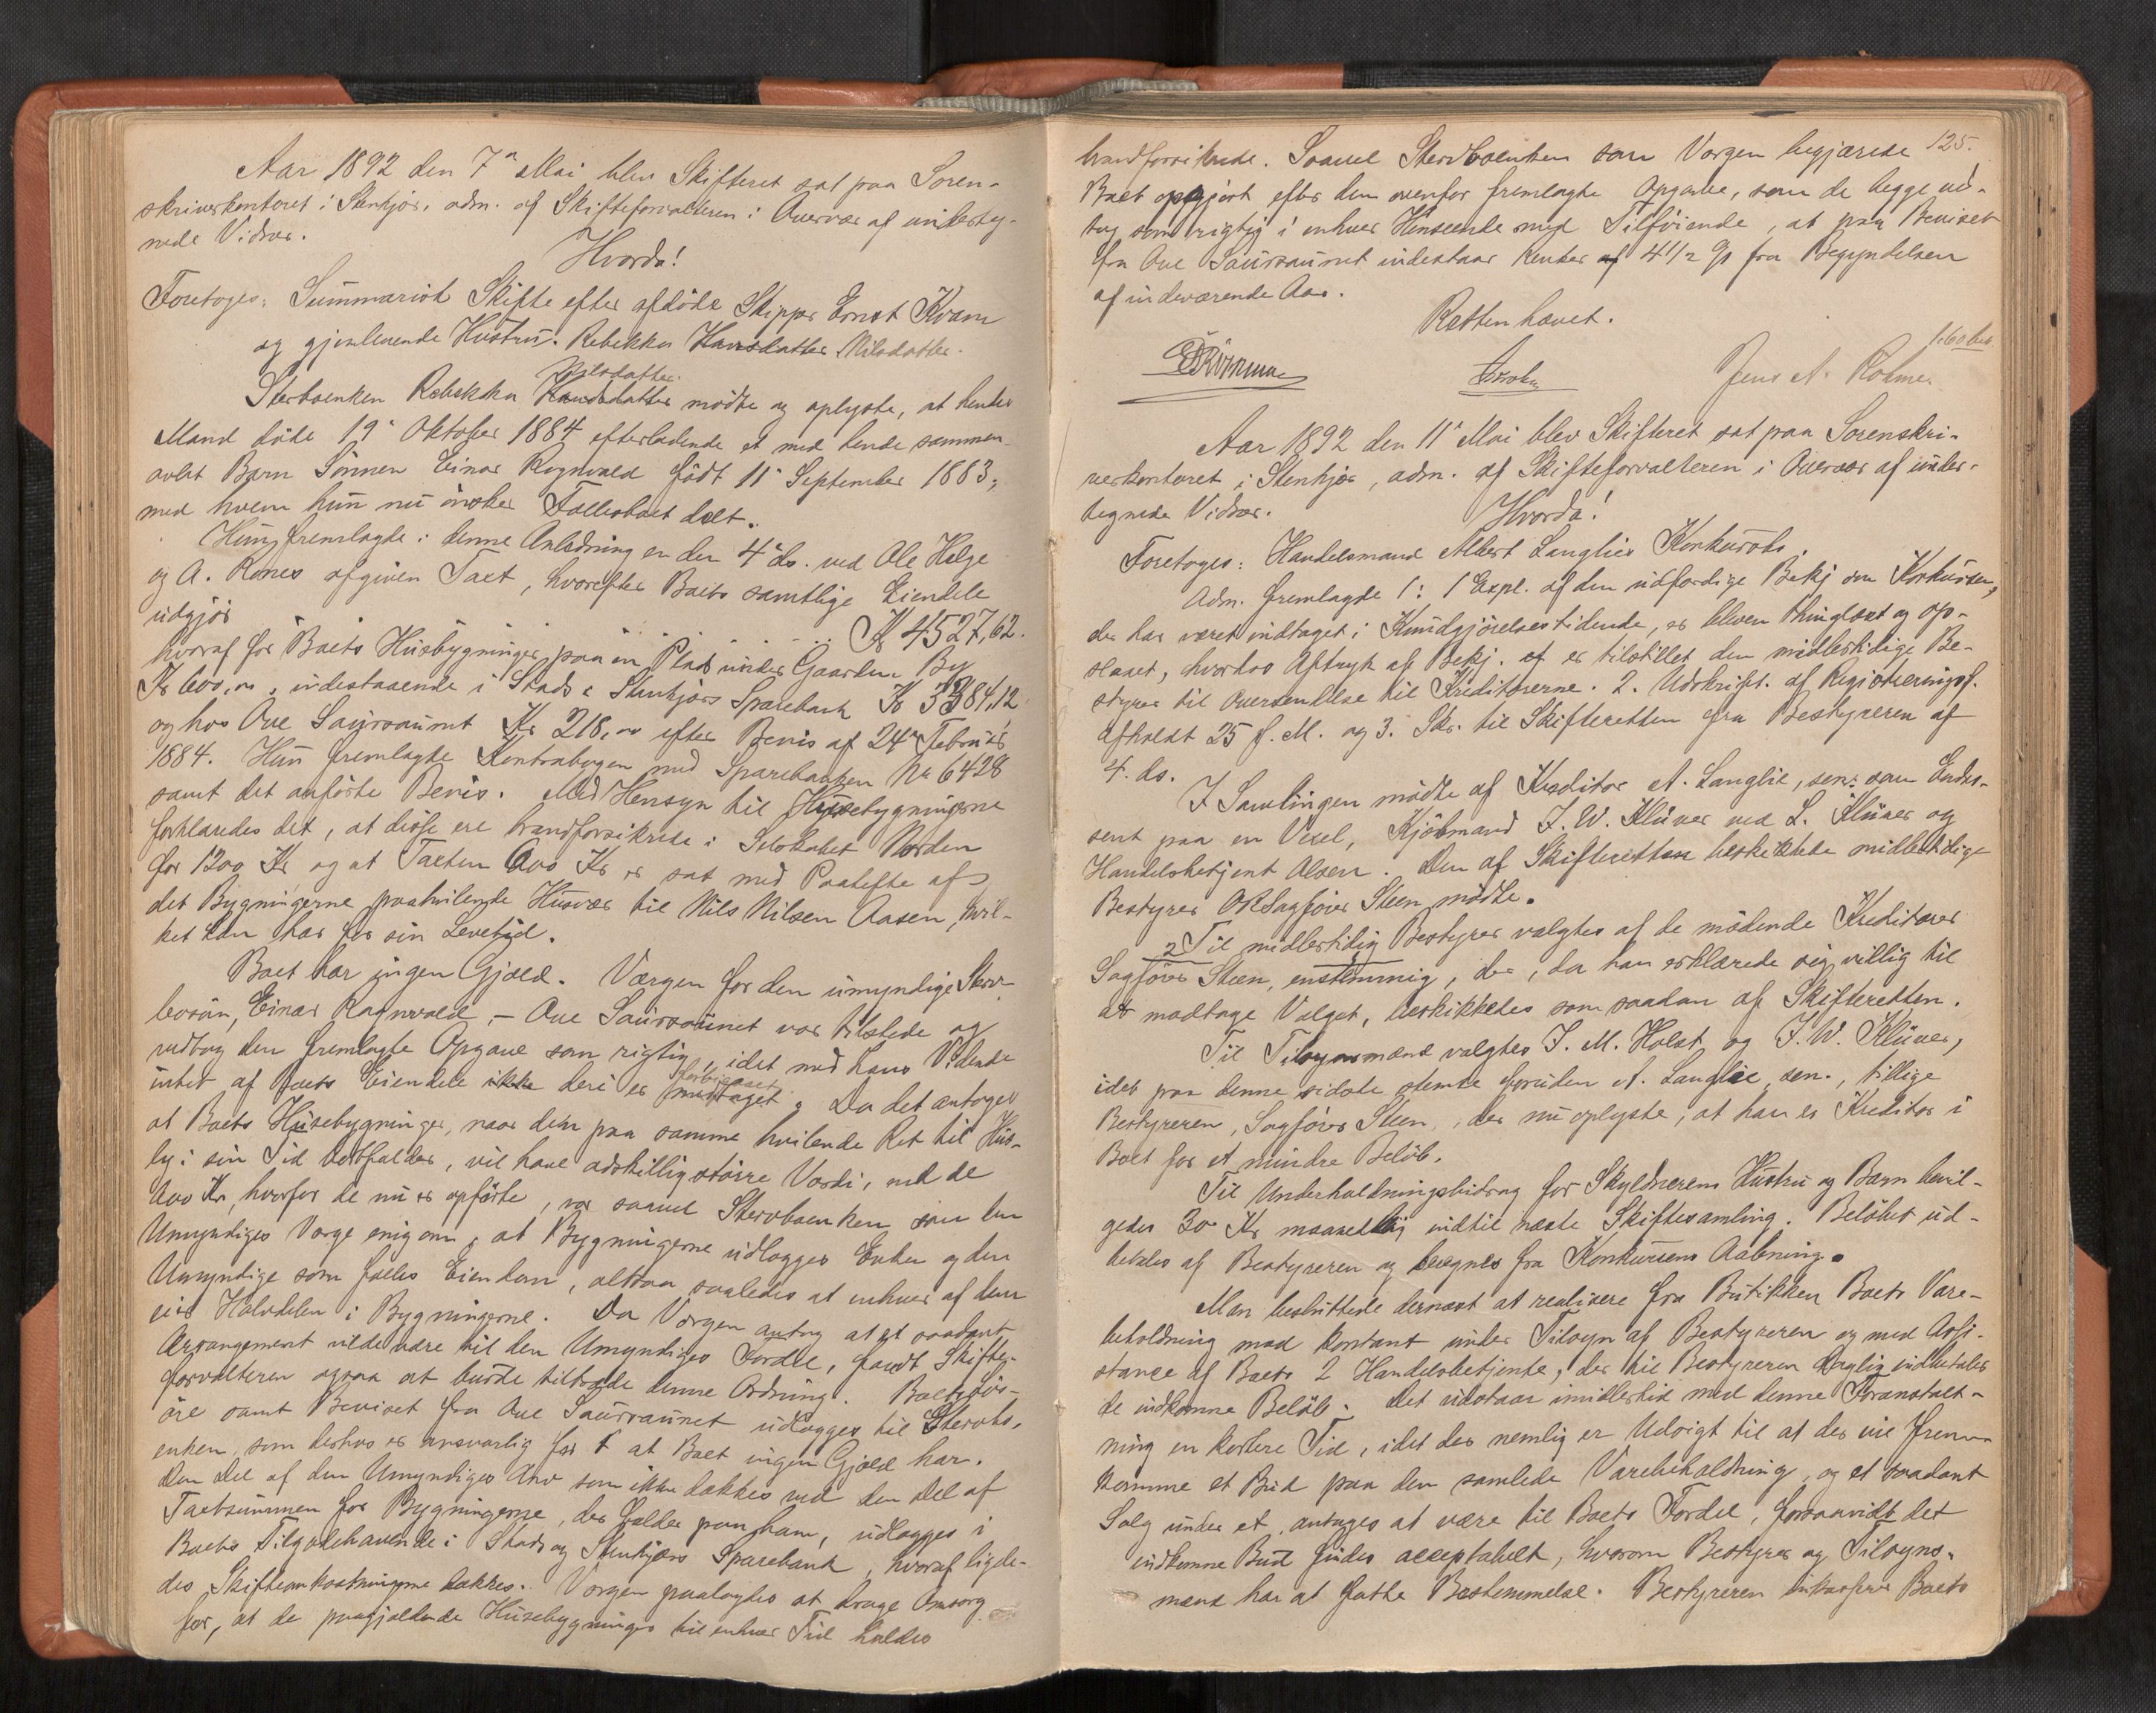 Aar 1892 den 7de Mai blev Skifteret sat paa Soren-
skriverkontoret i Stenkjær, adm. af Skifteforvalteren i Overvær af underteg-
nede Vidner.
Hvorda!
Foretoges: Summarisk Skifte efter afdöde Skipper Ernst Kvam
og gjenlevende Hustru. Rebekka Hansdatter Nilsdatter.
Nilsdatter
Sterboenken Rebekka Hansdatter mödte og oplyste, at hendes
Mand döde 19de Oktober 1884 efterladende et med hende sammen-
avlet Barn Sönnen Einar Ragnvald födt 11te September 1883;
med hvem hun nu önsker Fællesboet delt.
Hun fremlagde i denne Anledning en den 4de ds. ved Ole Helge
og A. Rones afgiven Taxt, hvorefter Boets samtlige Eiendele
udgjör . . . . . Kr 4527,62.
hvoraf for Boets Husbygninger paa en Plads under Gaarden By
Kr 600,00, indestaaende i Stods & Stenkjærs Sparebank Kr 3384,12
og hos Ove Saursaunet Kr 218,00 efter Bevis af 24de Februar
1884. Hun fremlagde Kontrabogen med Sparebanken No 6428
samt det anförte Bevis. Med Hensyn til Husebygningerne
forklaredes det, at disse ere brandforsikrede i Selskabet Norden
for 1200 Kr og at Taxten 600 Kr er sat med Paahefte af
det Bygningerne paahvilende Husvær til Nils Nilsen Aasen, hvil-
ket han har for sin Levetid.
Boet har ingen Gjæld. Værgen for den umyndige Sterv-
bosön, Einar Ragnvald, – Ove Saursaunet var tilstede og
vedtog den fremlagte Opgave som rigtig, idet med hans Vidende
intet af Boets Eiendele ikke deri er forbigaaet medtaget. Da det antoges
at Boets Husebygninger, naar den paa samme hvilende Ret til Hus-
ly i sin Tid bortfalder, vil have adskillig större Værdi, end de
600 Kr, hvorfor de nu er opförte, var saavel Stervboenken som den
Umyndiges Værge enig om, at Bygningerne udlægges Enken og den
Umyndige som fælles Eiendom, altsaa saaledes at enhver af dem
eier Halvdelen i Bygningerne. Da Værgen antog at et saadant
Arrangement vilde være til den Umyndiges Fordel, fandt Skifte-
forvalteren ogsaa at burde tiltræde denne Ordning. Boets Lös-
öre samt Beviset fra Ove Saursaunet udlægges til Stervbo-
enken, som derhos er ansvarlig for at Boet ingen Gjæld har.
Den Del af den Umyndiges Arv som ikke dækkes ved den Del af
Taxtsummen for Bygningerne, der falder paa ham, udlægges i
Boets Tilgodehavende i Stods og Stenkjærs Sparebank, hvoraf ligele-
des Skifteomkostningerne dækkes. Værgen paalagdes at drage Omsorg
for, at de paagjældende Husebygninger til enhver Tid holdes
125.
brandforsikrede. Saavel Stervboenken som Værgen begjærede
Boet opgjort efter den ovenfor fremlagte Opgave, som de begge ved-
tog som rigtig i enhver Henseende med Tilföiende, at paa Beviset
fra Ove Saursaunet indestaar Renter af 4 1/2 % fra Begyndelsen
af indeværende Aar.
Retten hævet.
Jens A. Rohme.
Aar 1892 den 11te Mai blev Skifteret sat paa Sorenskri-
verkontoret i Stenkjær, adm. af Skifteforvalteren i Overvær af under-
tegnede Vidner.
Hvorda!
Foretoges: Handelsmand Albert Langlies Konkursbo.
Adm. fremlagde 1: 1 Expl. af den udfærdige Bekj om Konkursen,
der har været indtaget i Kundgjörelsestidende, er bleven thinglæst og op-
slaaet, hvorhos Aftryk af Bekj. af er tilstillet den midlertidige Be-
styrer til Oversendelse til Kreditorerne. 2. Udskrift. af Registreringsf.
afholdt 25 f. M. og 3. Skr. til Skifteretten fra Bestyreren af
4. ds.
I Samlingen mödte af Kreditor A. Langlie, sen. som Endos-
sent paa en Vexel, Kjöbmand J. W. Klüver ved L. Klüver og
Handelsbetjent Alsen. Den af Skifteretten beskikkede midlertidige
Bestyrer ORSagförer Steen mödte.
Til midlertidig Bestyrer valgtes af de mödende Kreditorer
Sagförer Steen, enstemmig, der, da han erklærede sig villig til
at modtage Valget, beskikkedes som saadan af Skifteretten.
Til Tilsynsmænd valgtes J. M. Holst og J. W. Klüver,
idet paa denne sidste stemte foruden A. Langlie sen., tillige
Bestyreren, Sagförer Steen, der nu oplyste, at han er Kreditor i
Boet for et mindre Belöb.
Til Underholdningsbidrag for Skyldnerens Hustru og Barn bevil-
gedes 30 Kr maanedlig indtil næste Skiftesamling. Belöbet ud-
betales af Bestyreren og beregnes fra Konkursens Aabning.
Man besluttede dernæst at realisere fra Butikken Boets Vare-
beholdning mod kontant under Tilsyn af Bestyreren og med Assi-
stance af Boets 2 Handelsbetjente, der til Bestyreren daglig indbetaler
de indkomne Belöb. Det udstaar imidlertid med denne Foranstalt-
ning en kortere Tid, idet der nemlig er Udsigt til at der vil frem-
komme et Bud paa den samlede Varebeholdning, og et saadant
Salg under et antages at være til Boets Fordel, forsaavidt det
indkomne Bud findes acceptabelt, hvorom Bestyrer og Tilsyns-
mænd har at fatte Bestemmelse. Bestyreren inkasserer Boets